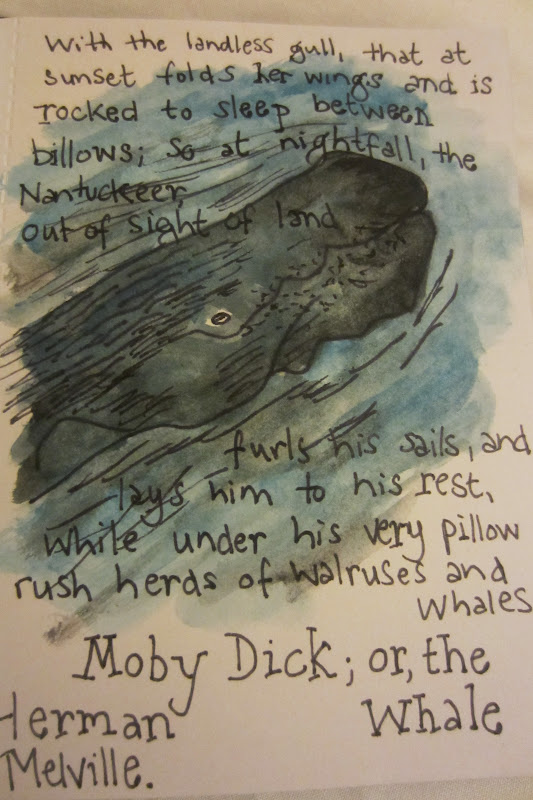 With the landless gull, that at
sunset folds her wings and is
rocked to sleep between
billows; so at nightfall, the
Nantuckeer,
out of sight of land
furls his sails, and
lays him to his rest,
while under his very pillow
rush herds of walruses and
whales
Moby Dick; or, the
Whale
Herman
Melville.